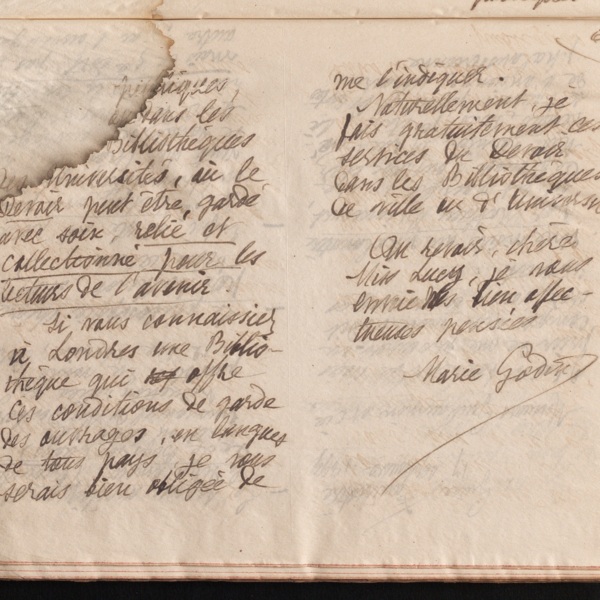 dans les
Bibliothèques
des Universités, où le
Devoir peut être, gardé
avec soin, relié et
collectionné pour les
lecteurs de l'avenir
Si vous connaissiez
à Londres une Biblio-
thèque qui offre
ces conditions de garde
des ouvrages, en langues
de tous pays, je vous
serais bien obligée de
me l'indiquer.
Naturellement, je
fais gratuitement ces
services du Devoir
dans les Bibliothèques
de ville ou d'Univers
Au revoir, chère
Miss Lucy, je vous
envoie les bien affec-
tueuses pensées
Marie Godin